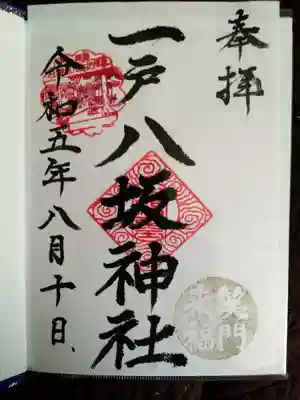 奉拝
一戸八坂神社
令和五年八月十日、
笑門
来福